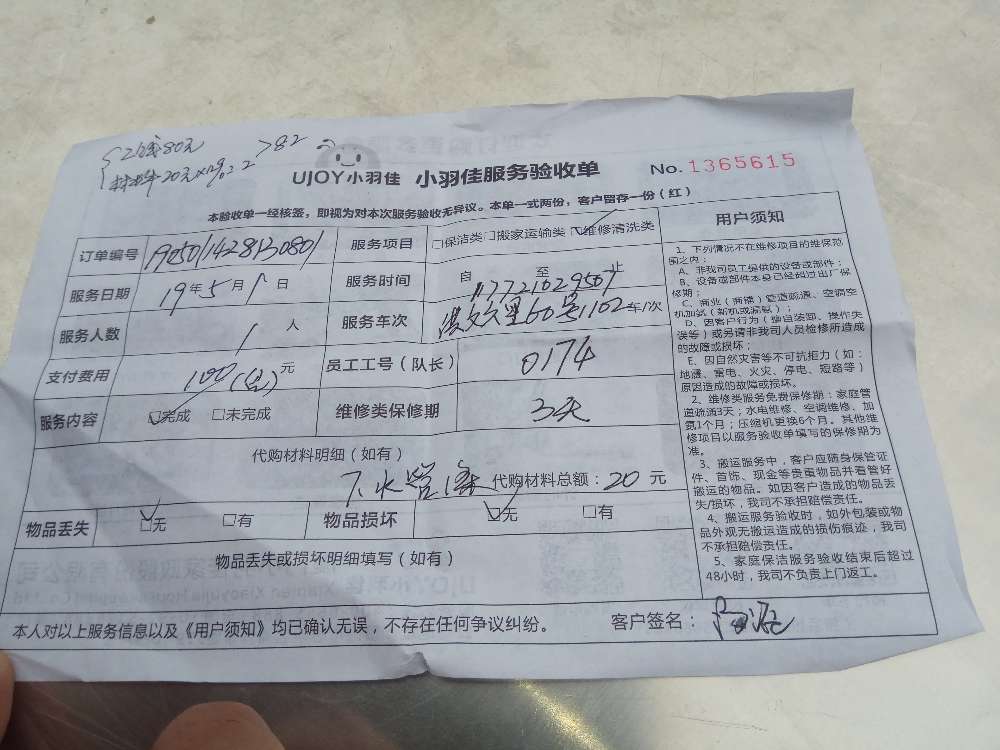 80元 >82
20元
UJOY小羽佳 小羽佳服务验收单 No. 1365615
本验收单一经核签，即视为对本次服务验收无异议。本单一式两份，客户留存一份（红）
订单编号 服务项目 □保洁类□搬家运输类☑维修清洗类
服务日期 19年5月1日 服务时间 自 至 止
17721029567
服务人数 1人 服务车次 60号1102车/次
支付费用 100 元 员工工号（队长） 0174
服务内容 ☑完成 □未完成 维修类保修期 3天
代购材料明细（如有）
下水管 代购材料总额：20元
物品丢失 ☑无 □有 物品损坏 ☑无 □有
物品丢失或损坏明细填写（如有）
本人对以上服务信息以及《用户须知》均已确认无误，不存在任何争议纠纷。 客户签名：
用户须知
1、下列情况不在维修项目的维保范
围之内：
A、非我司员工提供的设备或部件；
B、设备或部件本身已经超过出厂保
修期；
C、商业（商铺）管道疏通、空调空
机加氨（新机或漏氨）；
D、因客户行为（擅自装卸、操作失
误等）或另请非我司人员检修所造成
的故障或损坏；
E、因自然灾害等不可抗拒力（如：
地震、雷电、火灾、停电、短路等）
原因造成的故障或损坏。
2、维修类服务免费保修期：家庭管
道疏通3天；水电维修、空调维修、加
氨1个月；压缩机更换6个月。其他维
修项目以服务验收单填写的保修期为
准。
3、搬运服务中，客户应随身保管证
件、首饰、现金等贵重物品并看管好
搬运的物品。如因客户造成的物品丢
失/损坏，我司不承担赔偿责任。
4、搬运服务验收时，如外包装或物
品外观无搬运造成的损伤痕迹，我司
不承担赔偿责任。
5、家庭保洁服务验收结束后超过
48小时，我司不负责上门返工。